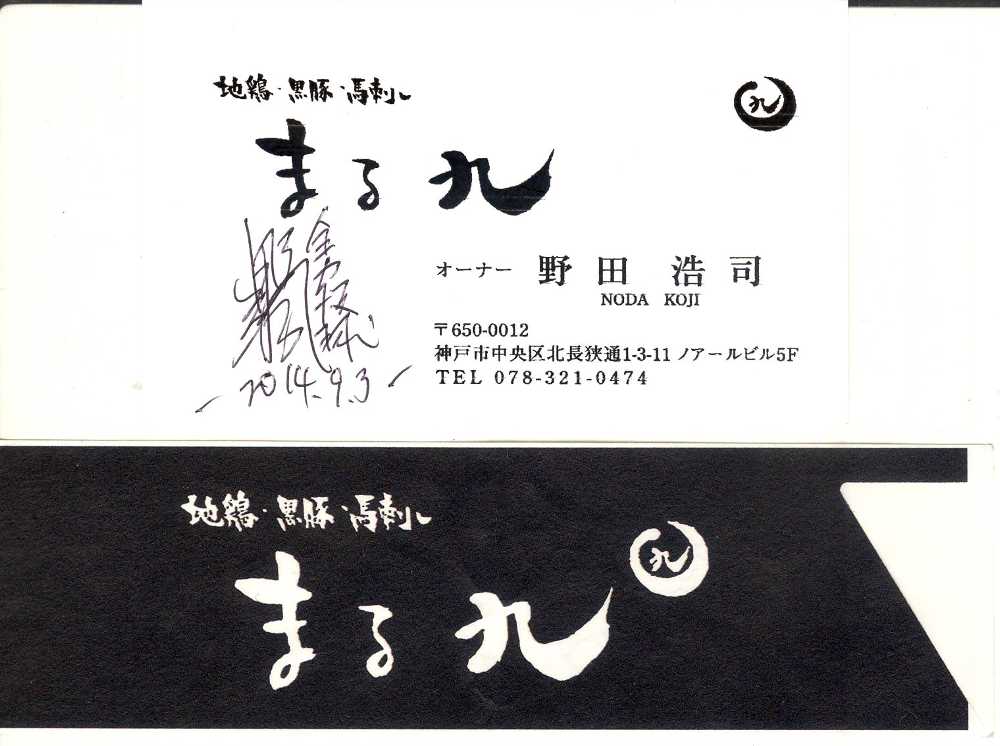 地鶏・黒豚・馬刺し
九
まる九
オーナー 野田 浩司
NODA KOJI
〒650-0012
神戸市中央区北長狭通1-3-11 ノアールビル5F
TEL 078-321-0474
2014.9.3
地鶏・黒豚・馬刺し
九
まる九